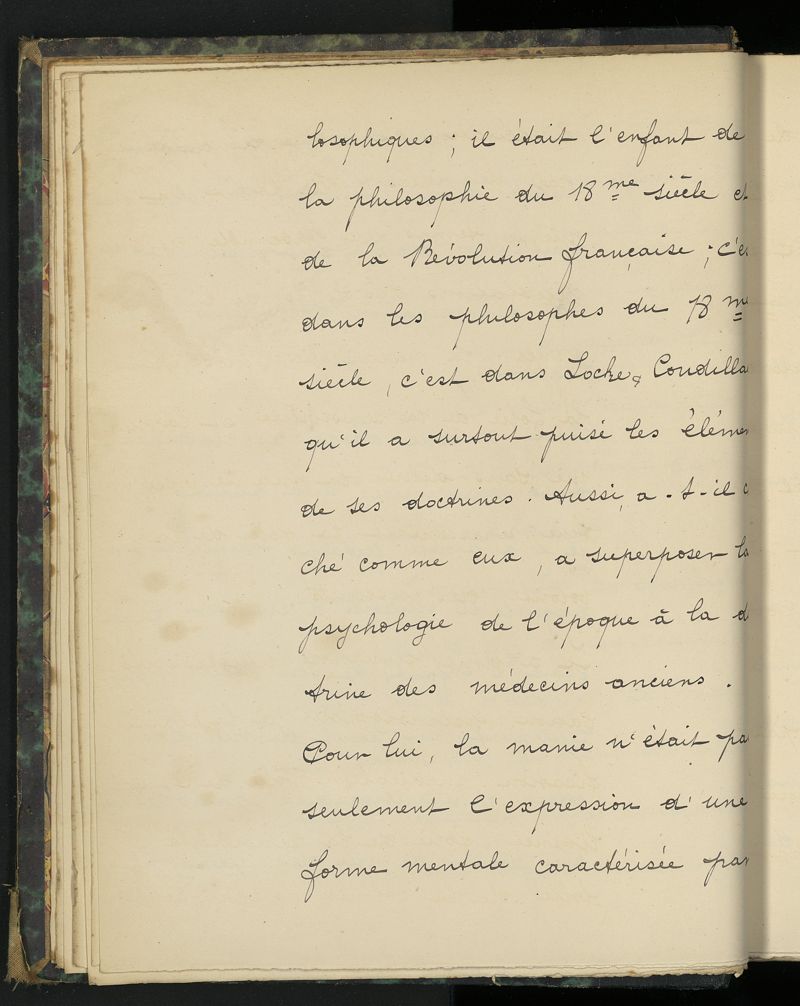 losophiques ; il était l'enfant de
la philosophie du 18me siècle et
de la Révolution française ; c'es
dans les philosophes du 18me
siècle, c'est dans Locke & Condilla
qu'il a surtout puisé les élémen
de ses doctrines. Aussi, a-t-il c
ché comme eux, a superposer la
psychologie de l'époque à la d
trine des médecins anciens.
Pour lui, la manie n'était pa
seulement l'expression d'une
forme mentale caractérisée par